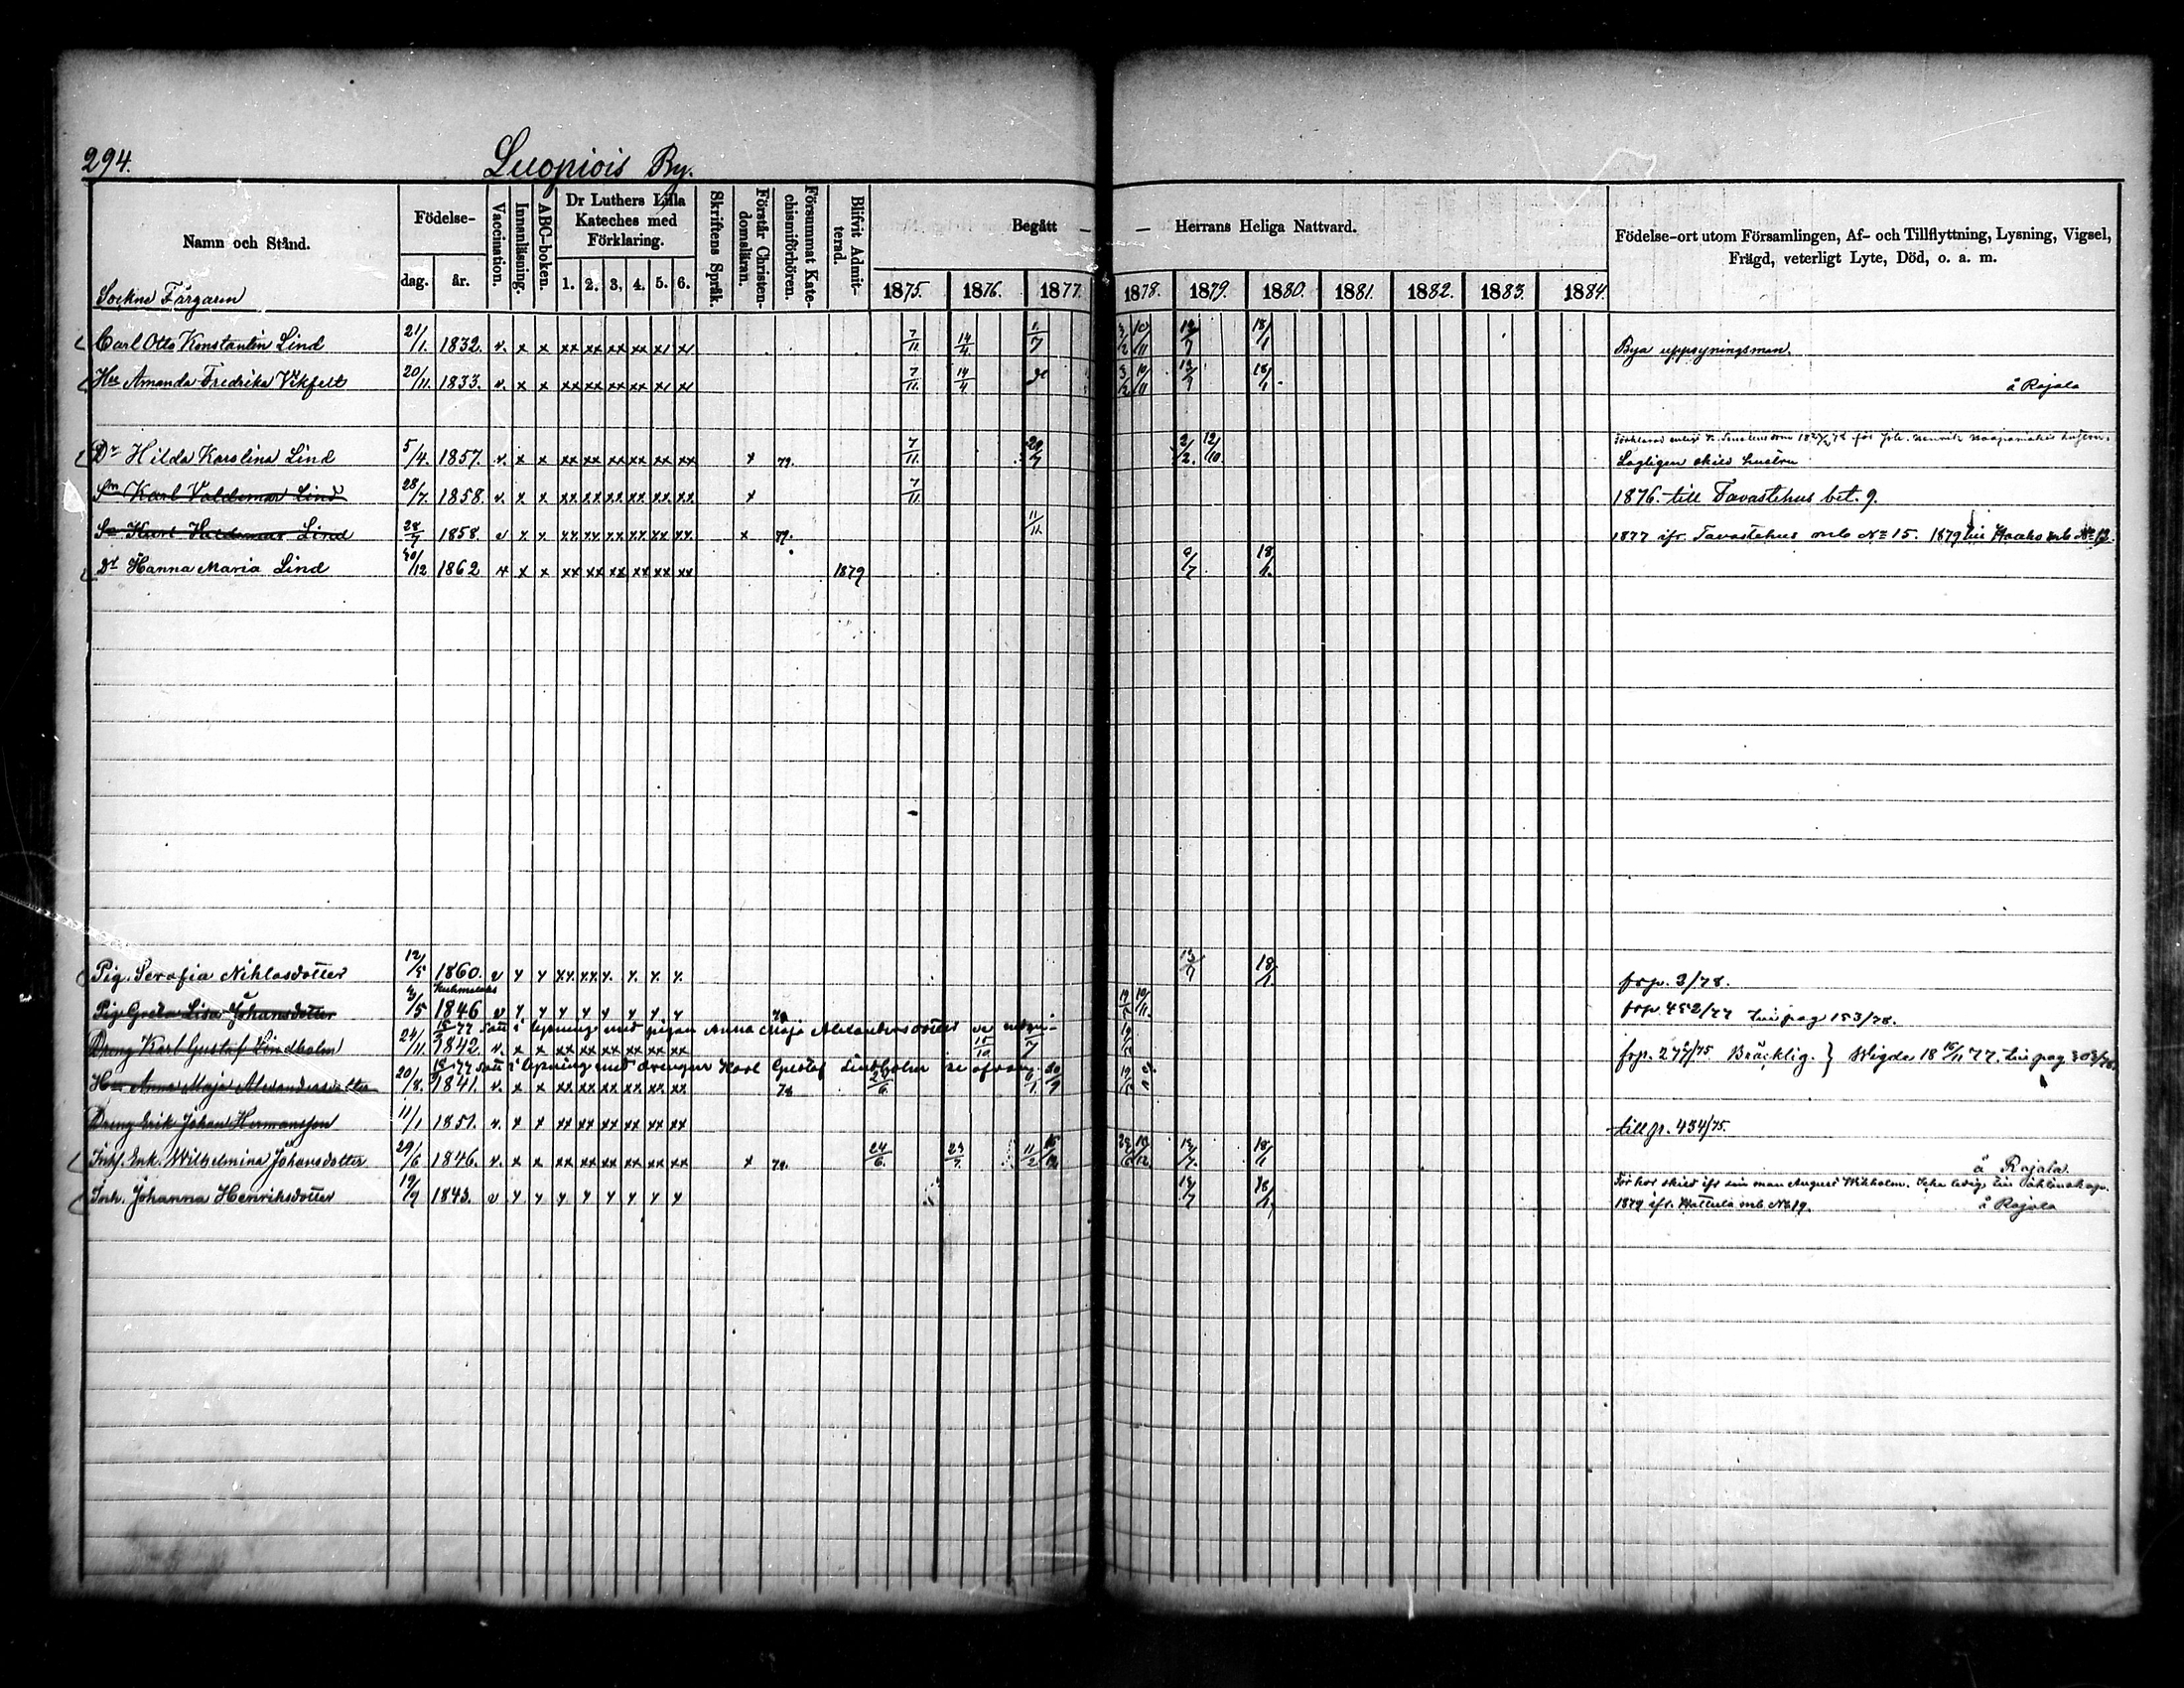 294.
Luopiois By.
Namn och Stånd.
Födelse-
dag. år.
Vaccination.
Innanläsning.
ABC-boken.
Dr Luthers Lilla Kateches med Förklaring.
1. 2. 3. 4. 5. 6.
Skriftens Språk.
Förstår Christen-domsläran.
Försummat Kate-chismiförhören.
Blifvit Admit-terad.
Begått — — Herrans Heliga Nattvard.
1875. 1876. 1877. 1878. 1879. 1880. 1881. 1882. 1883. 1884.
Födelse-ort utom Församlingen, Af- och Tillflyttning, Lysning, Vigsel,
Frägd, veterligt Lyte, Död, o. a. m.
Sockne Färgaren
Carl Otto Konstantin Lind 21/1. 1832. v. x x xx xx xx xx xx xx 7/11. 14/4. 1/7 3/2 10/11 13/7 18/1 Bya uppsyningsman.
Hu Amanda Fredrika Vikfelt 20/11. 1833. v. x x xx xx xx xx xx xx 7/11. 14/4. 3/2 10/11 13/7 18/1. å Rajala
Dr Hilda Karolina Lind 5/4. 1857. v. x x xx xx xx xx xx xx x 79. 7/11. 29/7 2/2. 12/10. Lagligen skild hustru
Sn Karl Valdemar Lind 28/7. 1858. v. x x xx xx xx xx xx xx x 7/11 1876. till Tavastehus bet. 9.
Sn Karl Valdemar Lind 28/7 1858. v x x xx xx xx xx xx xx x 79. 11/11. 1877 ifr. Tavastehus mb No 15. 1879
Dr Hanna Maria Lind 30/12 1862 v x x xx xx xx xx xx xx 1879 18/1.
Pig. Serafia Niklasdotter 12/5 1860. v x x xx. xx x. x. x. x. 13/7 18/1. frp. 3/78.
Pig. Greta Lisa Johansdotter 1846 v x x x x x x x x 19/5 10/11. frp. 452/77 Till pag 153/78.
18/2 77 satt i lysning med pigan Anna Maja Alexandersdotter se nedan
Dreng Karl Gustaf Lindholm 24/11. 1842. v. x x xx xx xx xx xx xx 15/10 frp. 277/75 Bräcklig. } Wigde 18 16/11 77.
18/2 77 satt i lysning med drengen Karl Gustaf Lindholm se ofvan
Hu Anna Maja Alexandersdotter 20/8. 1841. v. x x xx xx xx xx xx xx 78
Dreng Erik Johan Hermansson 11/1 1851. v. x x xx xx xx xx xx xx till p. 434/75.
Inhs. Enk. Wilhelmina Johansdotter 29/6 1846. v. x x xx xx xx xx xx xx x 79. 24/6. 23/7. 13/7. 18/1 å Rajala
Inh. Johanna Henriksdotter 19/9 1843. v x x x x x x x x 13/7 18/1. man August Wikholm.
1879 ifr. Hattula mb No 19. å Rajala